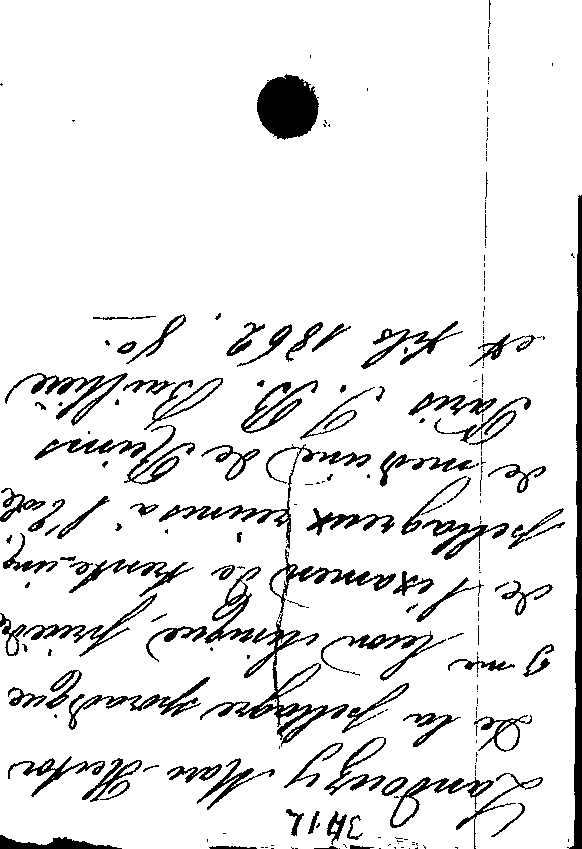 3412
Landouzy Marc Hector
De la pellagre sporadique
9me leçon clinique, précédée
de l'examen de trente-cinq
pellagreux réunis à l'Ecole
de medecine de Reims
Paris J. B. Baillière
et fils 1862. 8o.